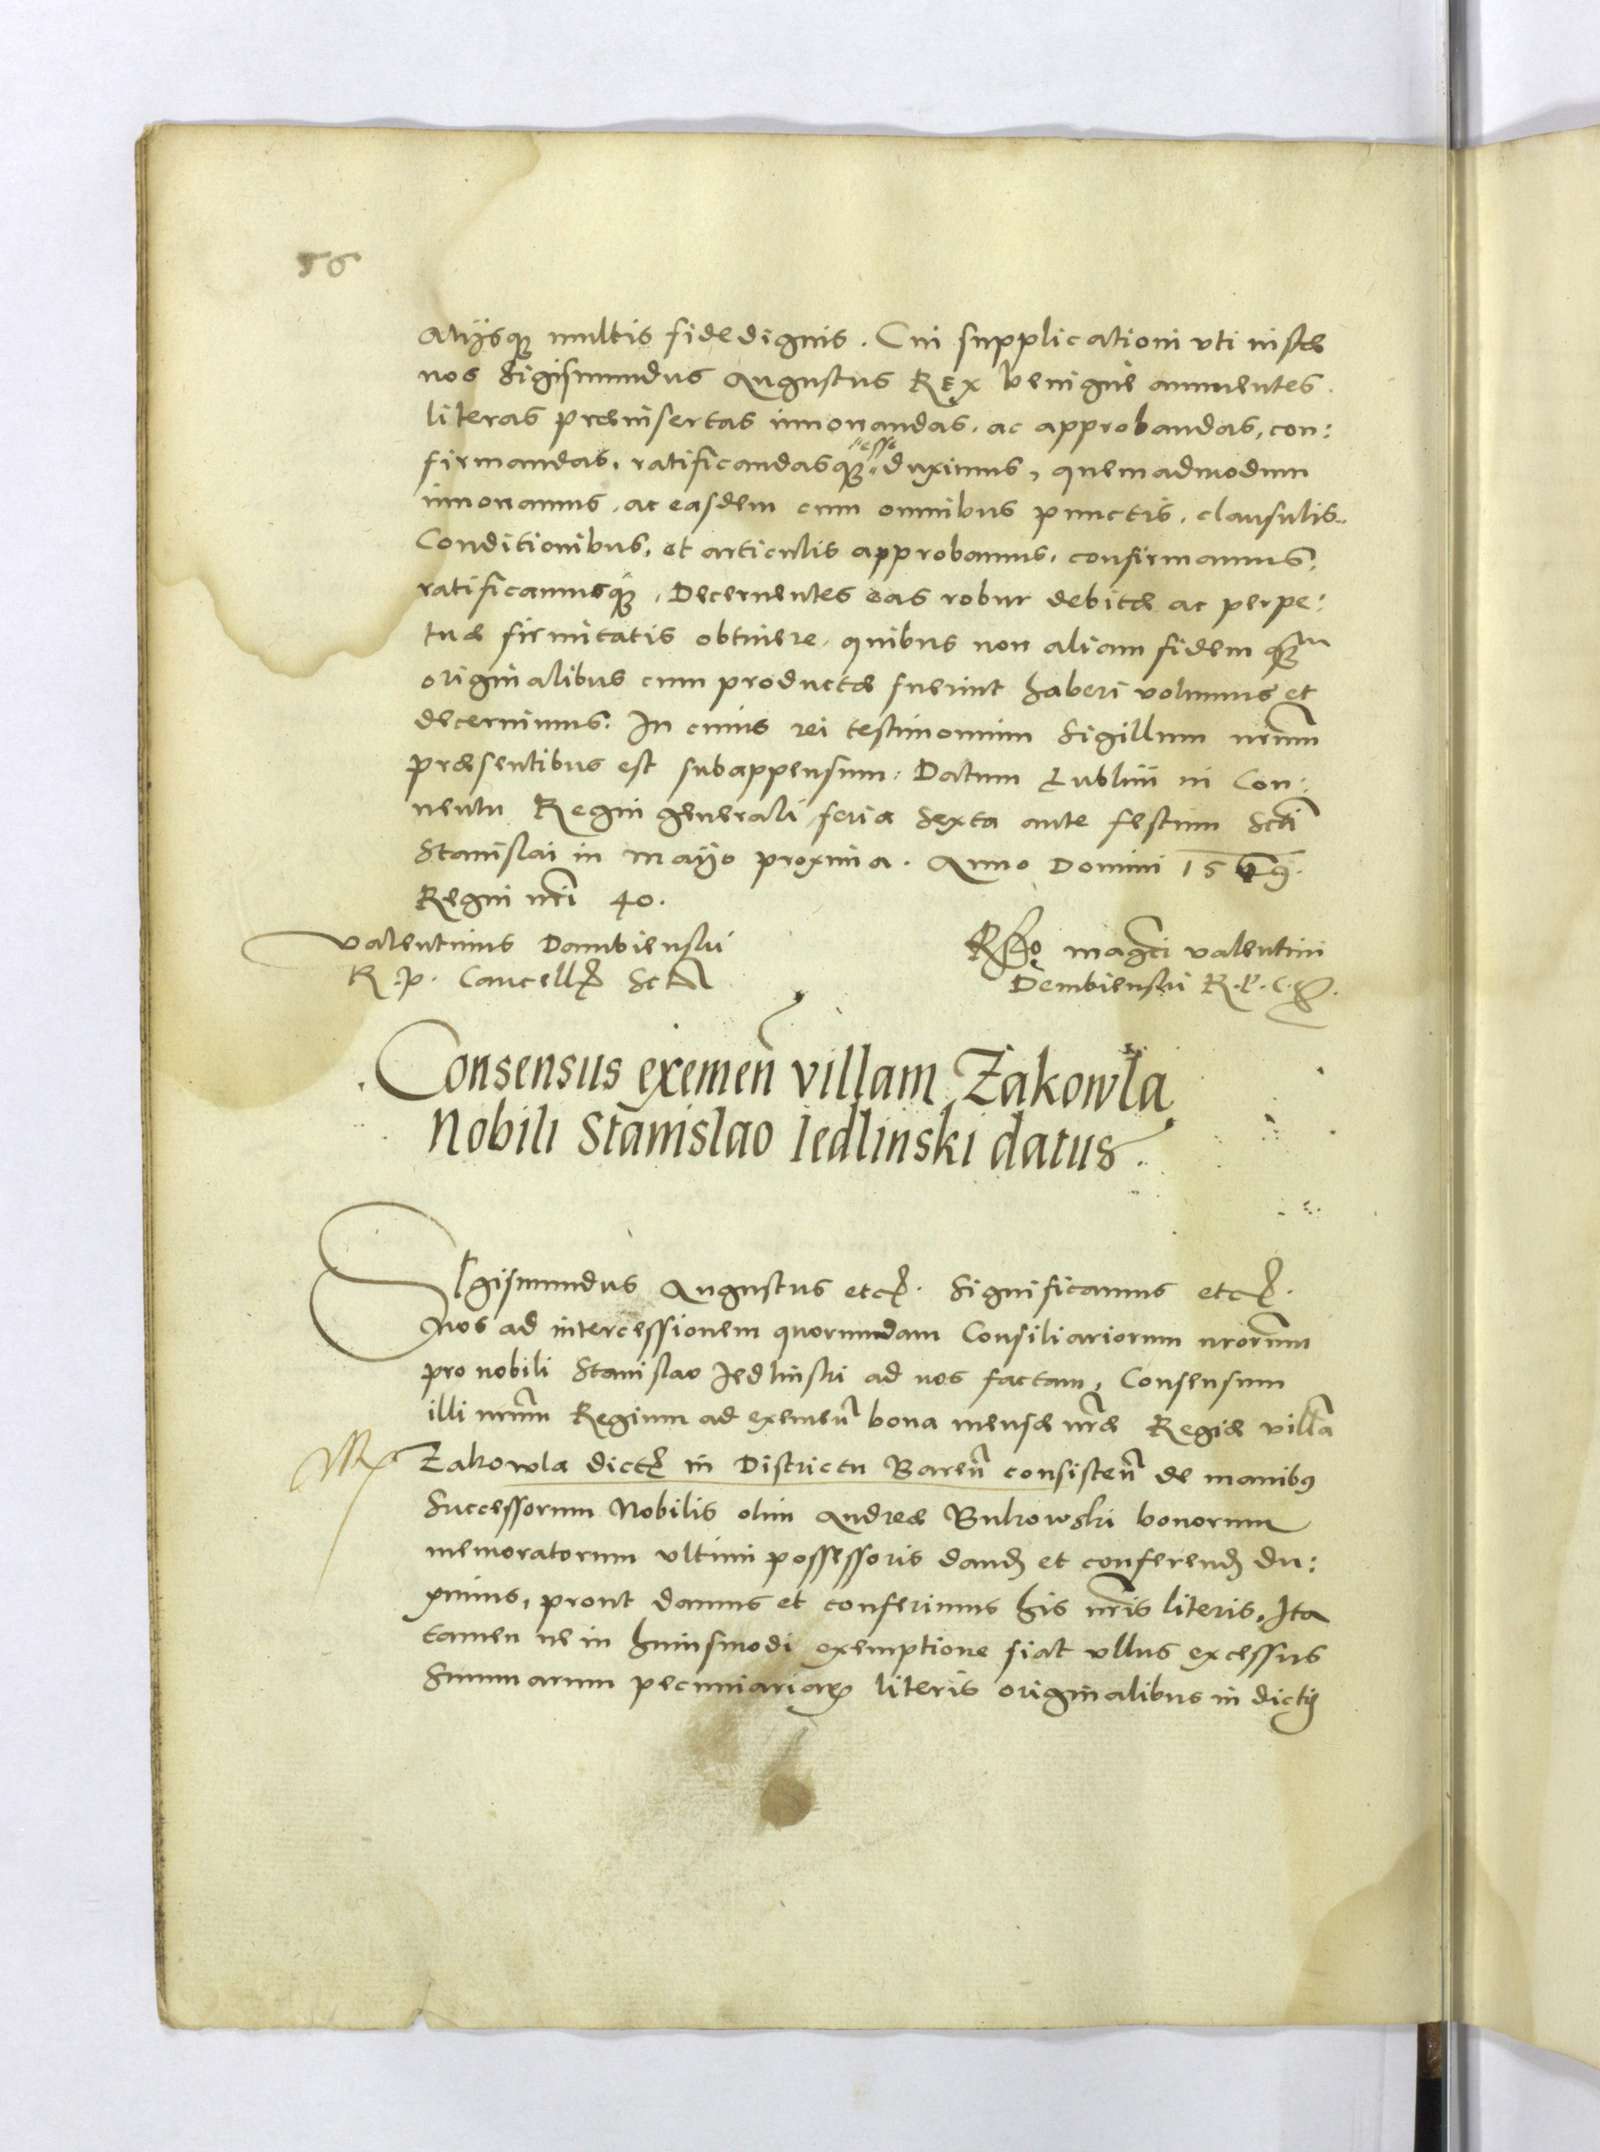 56
Aliisque multis fide dignis. Cui supplicationi uti iustæ
nos Sigismundus Augustus REX benigne annuentes.
literas præinsertas innouandas, ac approbandas, con:
firmandas, ratificandasque "esse" duximus, quemadmodum
innouamus, ac easdem cum omnibus punctis, clausulis.
Conditionibus, et articulis approbamus, confirmamus,
ratificamusque, Decernentes eas robur debitæ ac perpe:
tuæ firmitatis obtinere, quibus non aliam fidem quam
originalibus cum productæ fuerint haberi volumus et
decernimus. In cuius rei testimonium Sigillum nrum
præsentibus est subappensum. Datum Lublini in Con:
uentu Regni generali feria Sexta ante festum Scti
Stanislai in Mayo proxima. Anno Domini 1569.
Regni nri 40.
Valentinus Dambienski
R. P. Cancell. Sct
Rel°. magci Valentini
Dembienski R. P. C.
Consensus exemen villam Zakowla
Nobili Stanislao Iedlinski datus.
SIgismundus Augustus etc. Significamus etc.
Nos ad intercessionem quorumdam Consiliariorum nrorum
pro nobili Stanislao Iedlinski ad nos factam, Consensum
illi nrum Regium ad exemen bona mensæ nræ Regiæ villa
Zakowla dict in Districtu Baren consisten de manibus
Successorum Nobilis olim Andreæ Bukowski bonorum
memoratorum vltimi possessoris dand et conferend du:
ximus, prout damus et conferimus his nris literis. Ita
tamen ne in huiusmodi exemptione fiat vllus excessus
Summarum pecuniariar literis originalibus in dictis